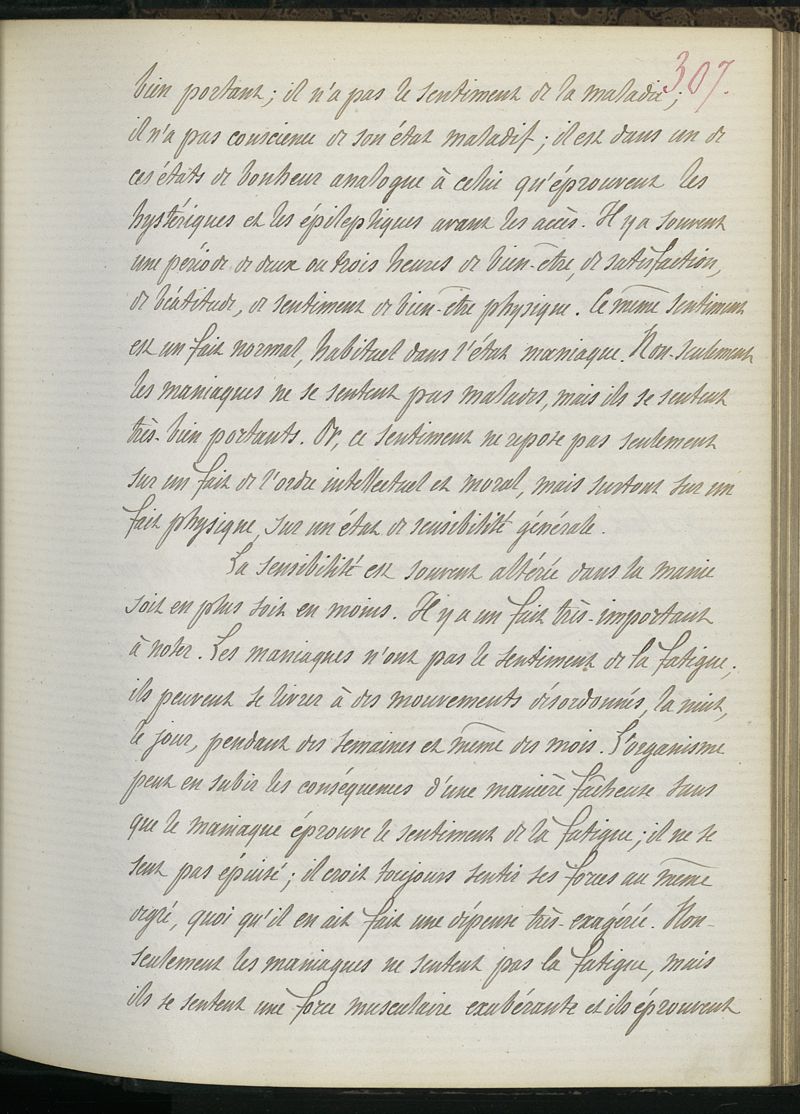 307.
bien portant ; il n'a pas le sentiment de la maladie ;
il n'a pas conscience de son état maladif ; il est dans un de
ces états de bonheur analogue à celui qu'éprouvent les
hystériques et les épileptiques avant les accès. Il y a souvent
une période de deux ou trois heures de bien-être, de satisfaction,
de béatitude, de sentiment de bien-être physique. Ce même sentiment
est un fait normal, habituel dans l'état maniaque. Non-seulement
les maniaques ne se sentent pas malades, mais ils se sentent
très-bien portants. Or, ce sentiment ne repose pas seulement
sur un fait de l'ordre intellectuel et moral, mais surtout sur un
fait physique, sur un état de sensibilité générale.
La sensibilité est souvent altérée dans la manie
soit en plus soit en moins. Il y a un fait très-important
à noter. Les maniaques n'ont pas le sentiment de la fatigue ;
ils peuvent se livrer à des mouvements désordonnés, la nuit,
le jour, pendant des semaines et même des mois. L'organisme
peut en subir les conséquences d'une manière fâcheuse sans
que le maniaque éprouve le sentiment de la fatigue ; il ne se
sent pas épuisé ; il croit toujours sentir ses forces au même
degré, quoi qu'il en ait fait une dépense très-exagérée. Non-
seulement les maniaques ne sentent pas la fatigue, mais
ils se sentent une force musculaire exubérante et ils éprouvent